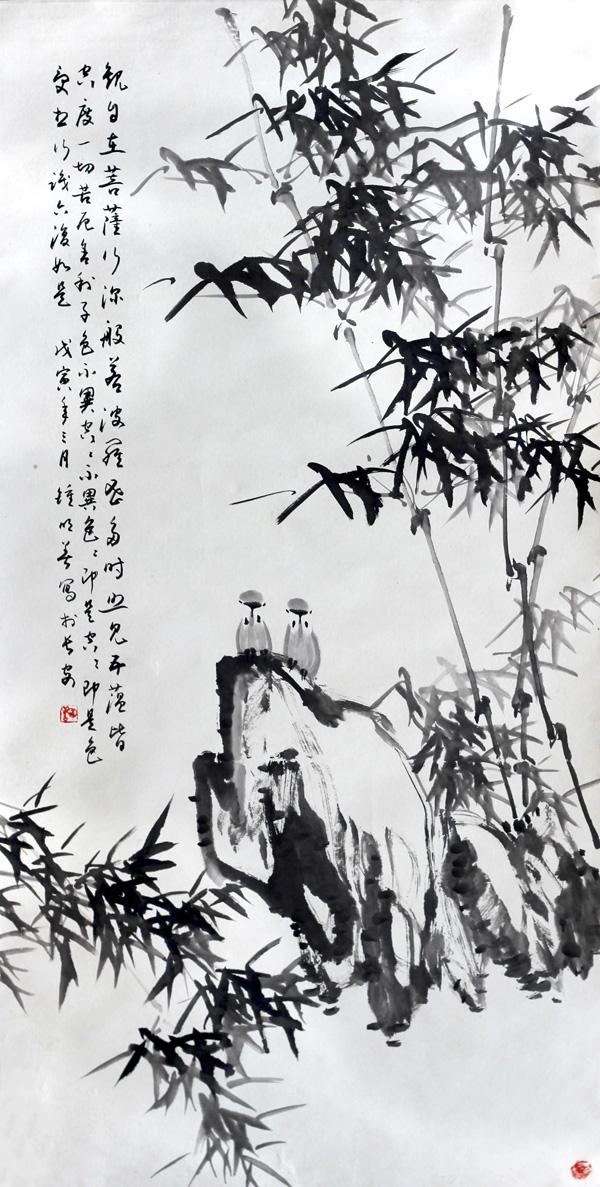 觀自在菩薩行深般若波羅蜜多时照见五蕴皆
空度一切苦厄舍利子色不異空〻不異色〻即是空〻即是色
受想行識亦復如是 戊寅年三月鍾明善寫於长安